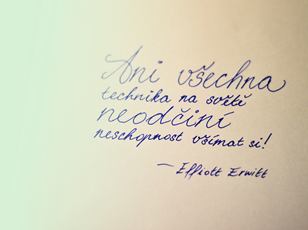 Ani všechna
technika na světě
neodčiní
neschopnost všímat si!
— Elliott Erwitt